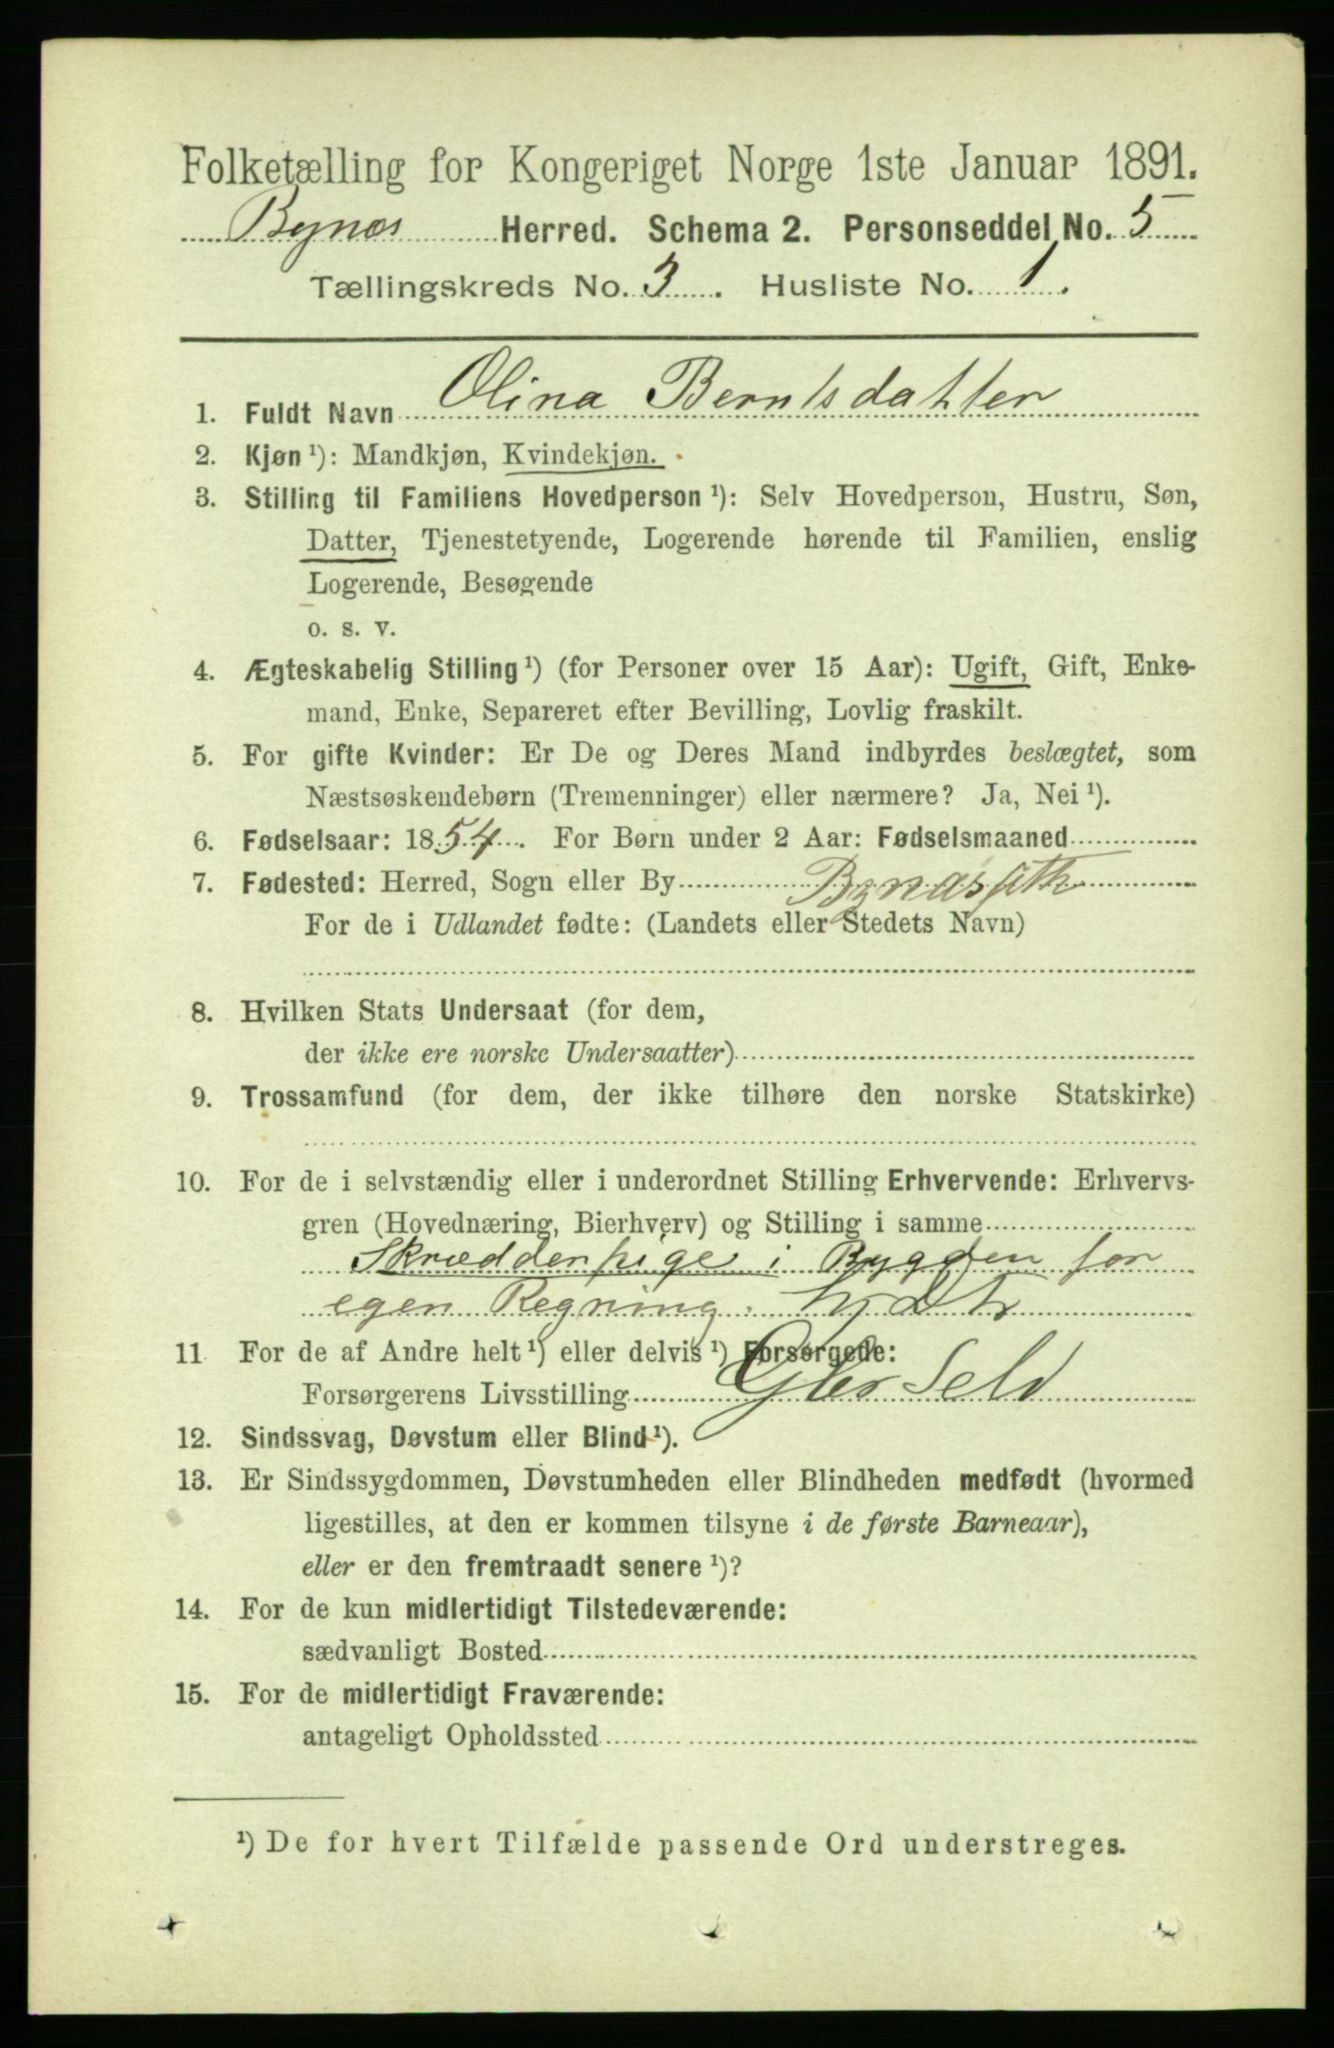 Folketælling for Kongeriget Norge 1ste Januar 1891.
Bynes Herred. Schema 2. Personseddel No. 5
Tællingskreds No. 3. Husliste No. 1.
1. Fuldt Navn Olina Berntsdatter
2. Kjøn ¹): Mandkjøn, Kvindekjøn.
3. Stilling til Familiens Hovedperson ¹): Selv Hovedperson, Hustru, Søn,
Datter, Tjenestetyende, Logerende hørende til Familien, enslig
Logerende, Besøgende
o. s. v.
4. Ægteskabelig Stilling ¹) (for Personer over 15 Aar): Ugift, Gift, Enke-
mand, Enke, Separeret efter Bevilling, Lovlig fraskilt.
5. For gifte Kvinder: Er De og Deres Mand indbyrdes beslægtet, som
Næstsøskendebørn (Tremenninger) eller nærmere? Ja, Nei ¹).
6. Fødselsaar: 1854. For Børn under 2 Aar: Fødselsmaaned
7. Fødested: Herred, Sogn eller By
For de i Udlandet fødte: (Landets eller Stedets Navn)
8. Hvilken Stats Undersaat (for dem,
der ikke ere norske Undersaatter)
9. Trossamfund (for dem, der ikke tilhøre den norske Statskirke)
10. For de i selvstændig eller i underordnet Stilling Erhvervende: Erhvervs-
gren (Hovednæring, Bierhverv) og Stilling i samme
Skrædderpige i Bygden for
egen Regning.
11 For de af Andre helt ¹) eller delvis ¹) Forsørgede:
Forsørgerens Livsstilling
12. Sindssvag, Døvstum eller Blind ¹).
13. Er Sindssygdommen, Døvstumheden eller Blindheden medfødt (hvormed
ligestilles, at den er kommen tilsyne i de første Barneaar),
eller er den fremtraadt senere ¹)?
14. For de kun midlertidigt Tilstedeværende:
sædvanligt Bosted
15. For de midlertidigt Fraværende:
antageligt Opholdssted
¹) De for hvert Tilfælde passende Ord understreges.